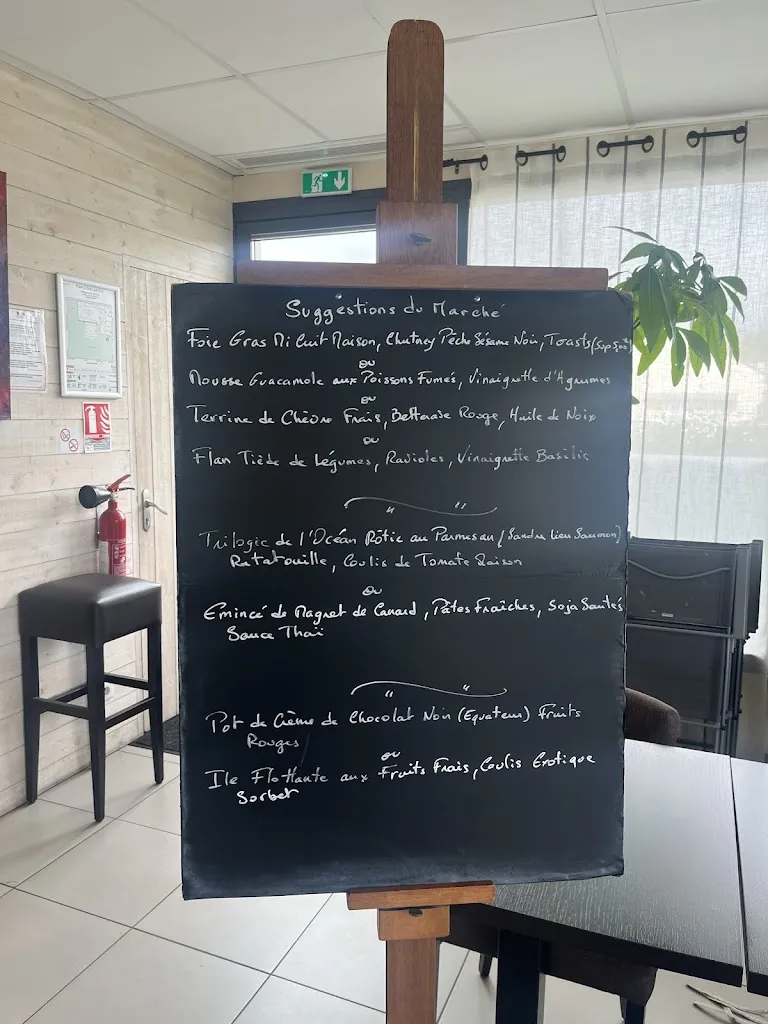 Suggestions du Marché
Foie Gras Mi Cuit Maison, Chutney Pêche Sésame Noir, Toasts
ou
Mousse Guacamole aux Poissons Fumés, Vinaigrette d'Agrumes
ou
Terrine de Chèvre Frais, Betterave Rouge, Huile de Noix
ou
Flan Tiède de Légumes, Ravioles, Vinaigrette Basilic
Trilogie de l'Océan Rôtie au Parmesan (Sandre Lieu Saumon)
Ratatouille, Coulis de Tomate
ou
Emincé de Magret de Canard, Pâtes Fraîches, Soja Sautés
Sauce Thaï
Pot de Crème de Chocolat Noir (Equateur) Fruits
Rouges
ou
Ile Flottante aux Fruits Frais, Coulis Exotique
Sorbet